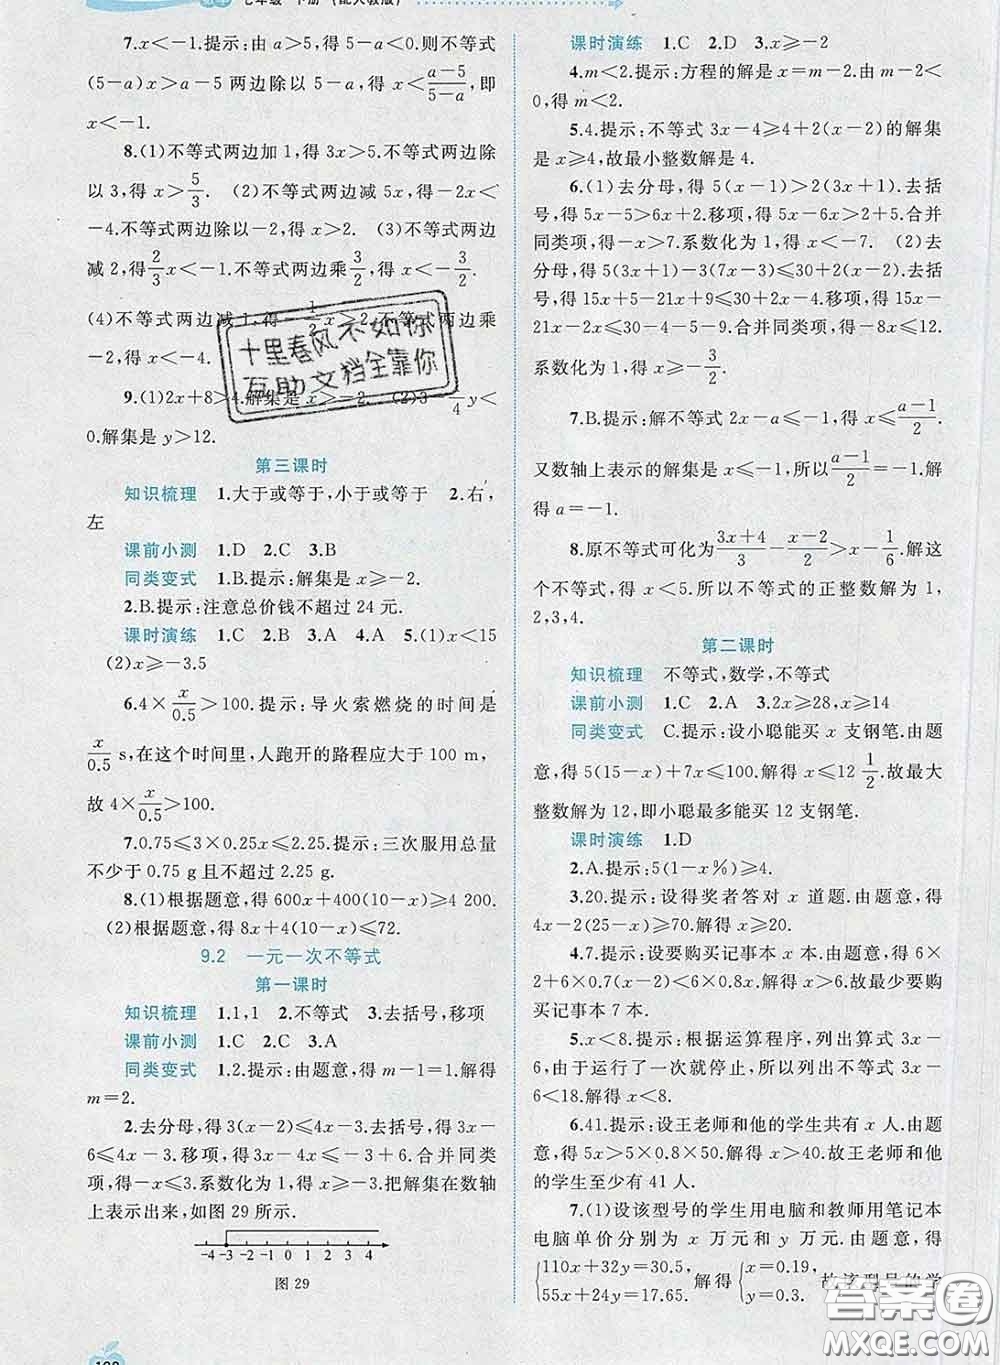 七年级 下册 (配人教版)
7.x<-1.提示:由 a>5,得 5-a<0.则不等式
(5-a)x>a-5 两边除以 5-a,得 x<\frac{a-5}{5-a},即
x<-1.
8.(1)不等式两边加 1,得 3x>5.不等式两边除
以 3,得 x>\frac{5}{3}. (2)不等式两边减 5x,得-2x<
-4.不等式两边除以-2,得 x>2. (3)不等式两边
减 2,得\frac{2}{3}x<-1.不等式两边乘\frac{3}{2},得 x<-\frac{3}{2}.
(4)不等式两边减 1,得-\frac{1}{2}x>2.不等式两边乘
-2,得 x<-4.
9.(1)2x+8>4.解集是 x>-2. (2)3-\frac{1}{4}y<
0.解集是 y>12.
十里春风不如你
互助文档全靠你
第三课时
知识梳理 1.大于或等于,小于或等于 2.右,
左
课前小测 1.D 2.C 3.B
同类变式 1.B.提示:解集是 x≥-2.
2.B.提示:注意总价钱不超过 24 元.
课时演练 1.C 2.B 3.A 4.A 5.(1)x<15
(2)x≥-3.5
6.4×\frac{x}{0.5}>100.提示:导火索燃烧的时间是
\frac{x}{0.5} s,在这个时间里,人跑开的路程应大于 100 m,
故 4×\frac{x}{0.5}>100.
7.0.75≤3×0.25x≤2.25.提示:三次服用总量
不少于 0.75 g 且不超过 2.25 g.
8.(1)根据题意,得 600x+400(10-x)≥4 200.
(2)根据题意,得 8x+4(10-x)≤72.
9.2 一元一次不等式
第一课时
知识梳理 1.1,1 2.不等式 3.去括号,移项
课前小测 1.C 2.C 3.A
同类变式 1.2.提示:由题意,得 m-1=1.解得
m=2.
2.去分母,得 3(x-2)≤4x-3.去括号,得 3x-
6≤4x-3.移项,得 3x-4x≤-3+6.合并同类
项,得-x≤3.系数化为 1,得 x≥-3.把解集在数轴
上表示出来,如图 29 所示.
-4 -3 -2 -1 0 1 2 3 4
图 29
课时演练 1.C 2.D 3.x≥-2
4.m<2.提示:方程的解是 x=m-2.由 m-2<
0,得 m<2.
5.4.提示:不等式 3x-4≥4+2(x-2)的解集
是 x≥4,故最小整数解是 4.
6.(1)去分母,得 5(x-1)>2(3x+1).去括
号,得 5x-5>6x+2.移项,得 5x-6x>2+5.合并
同类项,得-x>7.系数化为 1,得 x<-7. (2)去
分母,得 5(3x+1)-3(7x-3)≤30+2(x-2).去括
号,得 15x+5-21x+9≤30+2x-4.移项,得 15x-
21x-2x≤30-4-5-9.合并同类项,得-8x≤12.
系数化为 1,得 x≥-\frac{3}{2}.
7.B.提示:解不等式 2x-a≤-1,得 x≤\frac{a-1}{2}.
又数轴上表示的解集是 x≤-1,所以\frac{a-1}{2}=-1.解
得 a=-1.
8.原不等式可化为\frac{3x+4}{3}-\frac{x-2}{2}>x-\frac{1}{6}.解这
个不等式,得 x<5.所以不等式的正整数解为 1,
2,3,4.
第二课时
知识梳理 不等式,数学,不等式
课前小测 1.C 2.A 3.2x≥28,x≥14
同类变式 C.提示:设小聪能买 x 支钢笔.由题
意,得 5(15-x)+7x≤100.解得 x≤12\frac{1}{2}.故最大
整数解为 12,即小聪最多能买 12 支钢笔.
课时演练 1.D
2.A.提示:5(1-x%)≥4.
3.20.提示:设得奖者答对 x 道题.由题意,得
4x-2(25-x)≥70.解得 x≥20.
4.7.提示:设要购买记事本 x 本.由题意,得 6×
2+6×0.7(x-2)<6×0.8x.解得 x>6.故最少要购
买记事本 7 本.
5.x<8.提示:根据运算程序,列出算式 3x-
6,由于运行了一次就停止,所以列出不等式 3x-
6<18.解得 x<8.
6.41.提示:设王老师和他的学生共有 x 人.由
题意,得 5x>5×0.8×50.解得 x>40.故王老师和他
的学生至少有 41 人.
7.(1)设该型号的学生用电脑和教师用笔记本
电脑单价分别为 x 万元和 y 万元.由题意,得
{110x+32y=30.5, 解得 {x=0.19, 故该型号的学
55x+24y=17.65. y=0.3.
答案圈
MXQE.COM